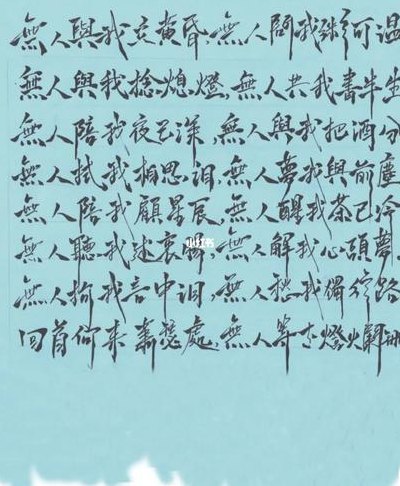 無人與我立黃昏,無人問我粥可温
無人與我捻熄燈,無人共我書半生
無人陪我夜已深,無人與我把酒分
無人拭我相思泪,無人夢我與前塵
無人陪我顧星辰,無人醒我茶已冷
無人聽我述衷腸 無人解我心頭夢
小红书
無人拘我言中泪,無人愁我獨行路
回首何來蕭瑟處,無人等在燈火闌珊